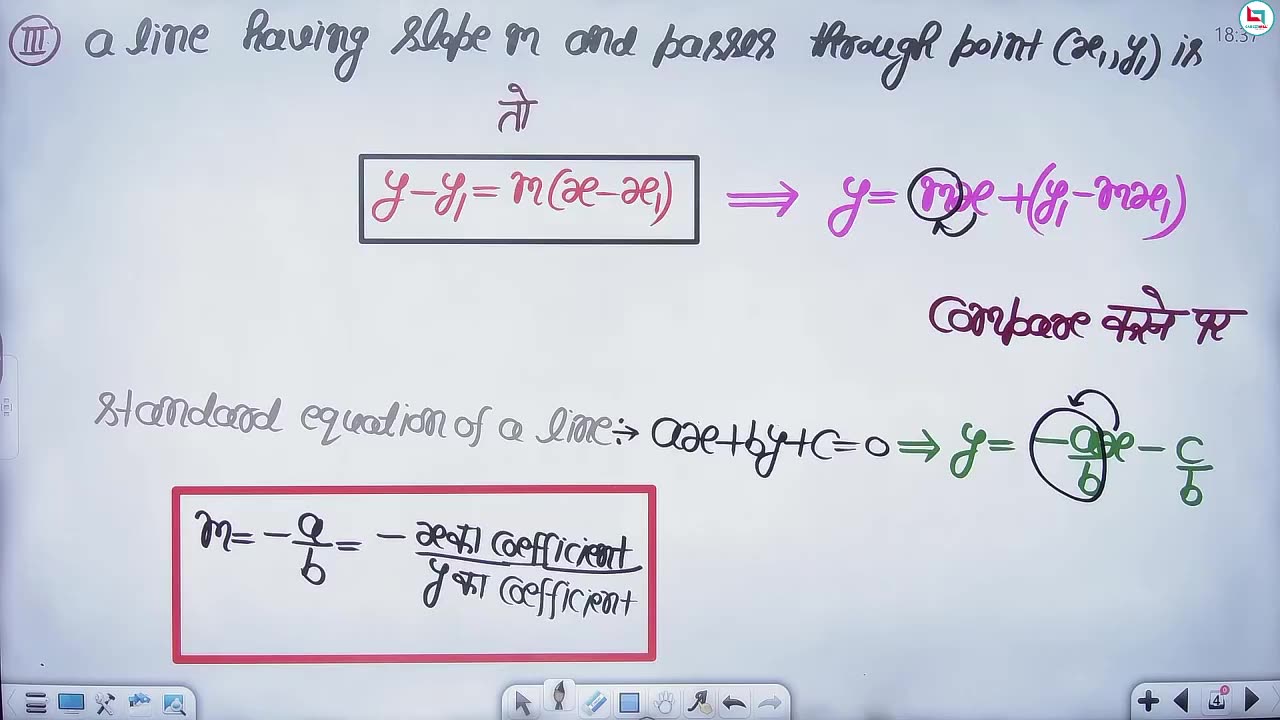 III a line having slope m and passes through point (x₁, y₁) is
18:37
तो
y-y₁ = m(x-x₁) ⟹ y = mx + (y₁-mx₁)
Compare करने पर
Standard equation of a line:→ ax+by+c=0 ⇒ y = -a/b x - c/b
m = -a/b = - x का coefficient / y का coefficient
4